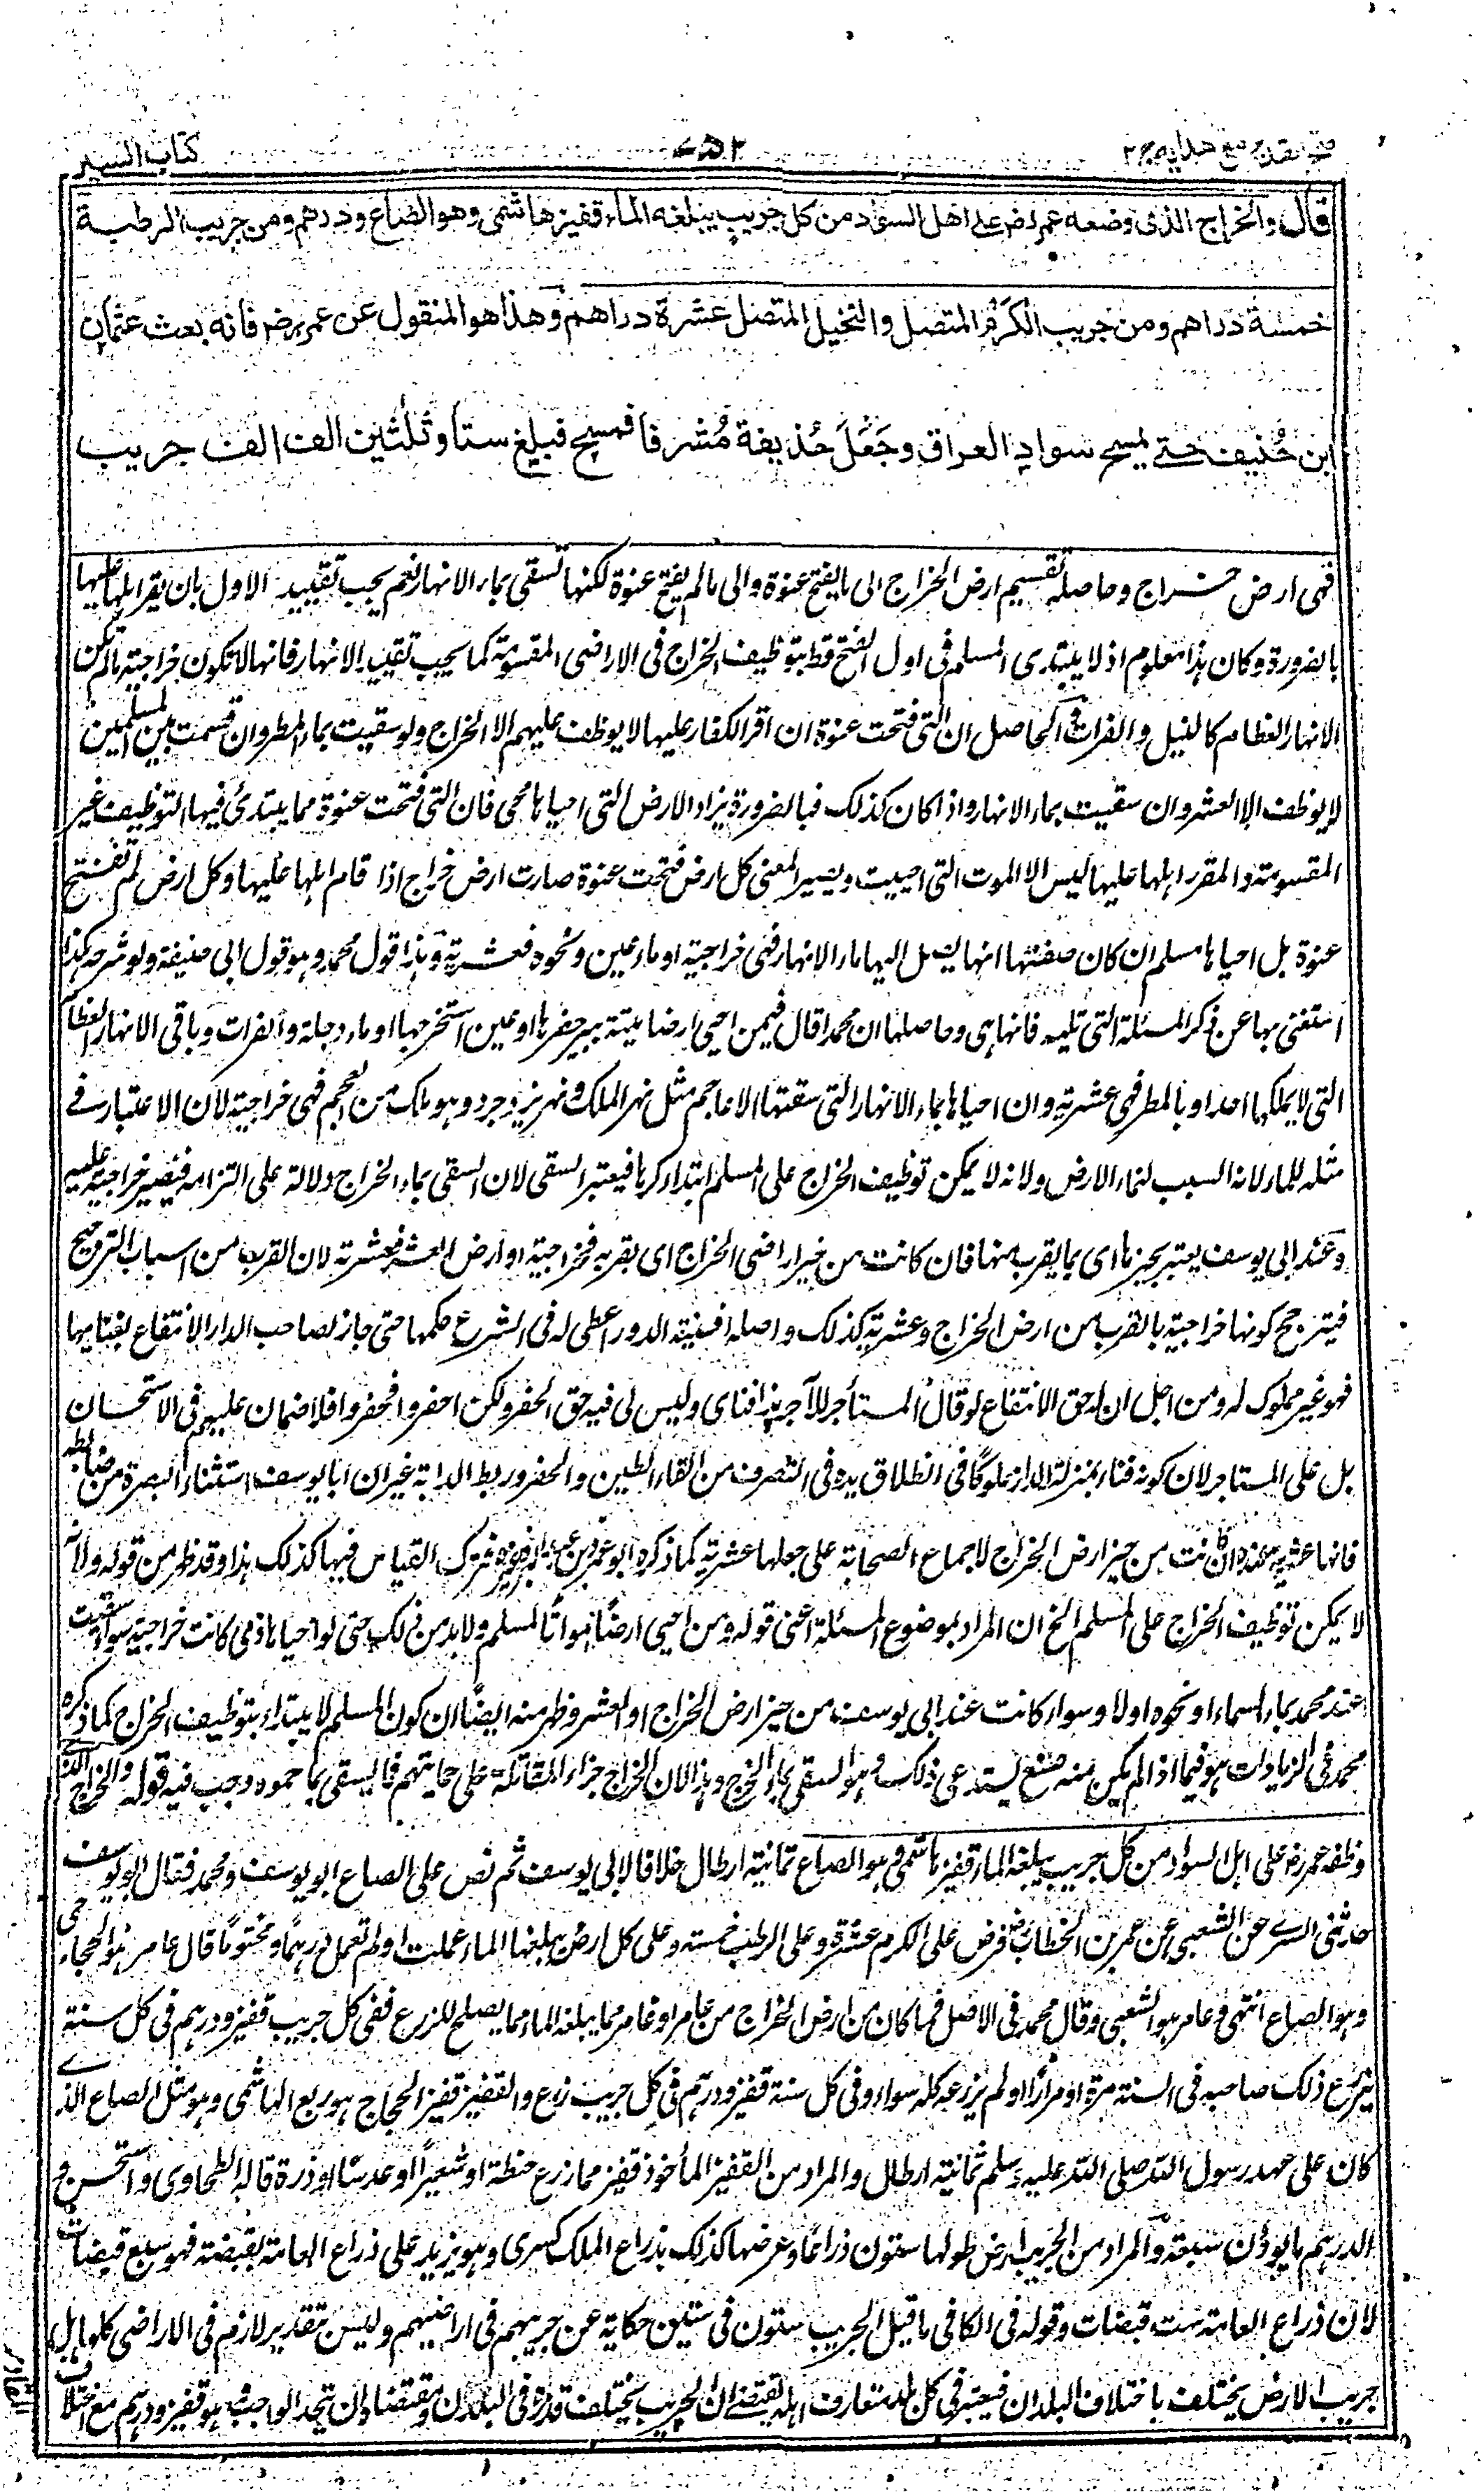 فتح القدير مع هدايه ج ٢
٧٥٢
كتاب السير
قال والخراج الذى وضعه عمر رض على اهل السواد من كل جريب يبلغه الماء قفيز هاشمى وهو الصاع ودرهم ومن جريب الرطبة
خمسة دراهم ومن جريب الكرم المتصل والنخيل المتصل عشرة دراهم وهذا هو المنقول عن عمر رض فانه بعث عثمان
ابن حُنيف حتى يمسح سواد العراق وجَعَلَ حُذيفة مُشرفا فمسح فبلغ ستا وثلثين الف الف جريب
فهى ارض خراج وحاصله تقسيم ارض الخراج الى ما يفتح عنوة والى ما لم يفتح عنوة لكنها تسقى بماء الانهار نعم يجب تقييد الاول بان يقر اهلها عليها
بالضرورة وكان هذا معلوم اذ لا يبتدى المسلم فى اول الفتح قط بتوظيف الخراج فى الاراضى المقسومة كما يجب تقييد الانهار فانها لا تكون خراجية ما لم تكن
الانهار العظام كالنيل والفرات فى الحاصل ان التى فتحت عنوة ان اقر الكفار عليها لا يوظف عليهم الا الخراج ولو سقيت بماء المطر وان قسمت بين المسلمين
لا يوظف الا العشر وان سقيت بماء الانهار واذا كان كذلك فبالضرورة يراد الارض التى احياها محى فان التى فتحت عنوة مما يبتدئ فيها التوظيف غير
المقسومة والمقرر اهلها عليها ليس الا الموت التى احييت ويصير المعنى كل ارض فتحت عنوة صارت ارض خراج اذا قام اهلها عليها وكل ارض لم تفتح
عنوة بل احياها مسلم ان كان صفتها انها يصل اليها ماء الانهار فهى خراجية او ماء عين ونحوه فعشرية وهذا قول محمد وهو قول ابى حنيفة ولو شرحه هكذا
استغنى بها عن ذكر المسئلة التى تليه فانها هى وحاصلها ان محمدا قال فيمن احيى ارضا ميتة ببير حفرها او عين استخرجها او ماء دجلة والفرات وباقى الانهار العظام
التى لا يملكها احد او بالمطر فهى عشرية وان احياها بماء الانهار التى سقتها الاعاجم مثل نهر الملك ونهر يزدجرد وهو ملك من العجم فهى خراجية لان الاعتبار فے
مثله للماء لانه السبب لنماء الارض ولانه لا يمكن توظيف الخراج على المسلم ابتداء كرها فيعتبر السقى لان السقى بماء الخراج دلالة على التزامه فيصير خراجية عليه
وعند ابى يوسف يعتبر بحيزها اى بما يقرب منها فان كانت من حيز اراضى الخراج اى بقربه فخراجية او ارض العشر فعشرية لان القرب من اسباب الترجيح
فيترجح كونها خراجية بالقرب من ارض الخراج وعشرية كذلك واصله افنية الدور اعطى له فى الشرع حكمها حتى جاز لصاحب الدار الانتفاع بفنايها
فهو غير مملوك له ومن اجل ان له حق الانتفاع لو قال المستأجر للآجر هذا فناى وليس لى فيه حق الحفر ولكن احفروا فحفروا فلا ضمان عليهم فى الاستحسان
بل على المستاجر لان كونه فناء بمنزلة الدار مملوكا فى انطلاق يده فى التصرف من القاء الطين والحفر وربط الدابة غير ان ابا يوسف استثناء البصرة من ضابطه
فانها عشرية عنده وان كانت من حيز ارض الخراج لاجماع الصحابة على جعلها عشرية كما ذكره ابو عمر بن عبد البر وغيره فترك القياس فيها كذلك هذا وقد ظهر من قوله ولانه
لا يمكن توظيف الخراج على المسلم الخ ان المراد بموضوع المسئلة اعنى قوله ومن احيى ارضًا مواتًا المسلم ولا بد من ذلك حتى لو احياها ذمى كانت خراجية سواء سقيت
عند محمد بماء السماء او نحوه اولا وسواء كانت عند ابى يوسف من حيز ارض الخراج او العشر وظهر منه ايضًا ان كون المسلم لا يبتداء بتوظيف الخراج كما ذكره
محمد فى الزيادات هو فيما اذا لم يكن منه صنع يستدعى ذلك وهو السقى بماء الخراج وهذا لان الخراج جزاء المقاتلة على حمايتهم فما يسقى بما حموه وجب فيه قوله والخراج الذے
وظفه عمر رض على اهل السواد من كل جريب يبلغه الماء قفيز هاشمى وهو الصاع ثمانية ارطال خلافا لابى يوسف ثم نص على الصاع ابو يوسف ومحمد فقال ابو يوسف
حدثنى السرے عن الشعبى عن عمر بن الخطاب رض فرض على الكرم عشرة وعلى الرطبة خمسة وعلى كل ارض يبلغها الماء عملت او لم تعمل درهمًا ومختومًا قال عامر هو الحجاجى
وهو الصاع انتهى وعامر هو الشعبى وقال محمد فى الاصل فما كان من ارض الخراج من عامر او غامر مما يبلغه الماء مما يصلح للزرع ففى كل جريب قفيز ودرهم فى كل سنة
زرع ذلك صاحبه فى السنة مرة او مرارًا او لم يزرعه كله سواء وفى كل سنة قفيز ودرهم فى كل جريب زرع والقفيز قفيز الحجاج هو ربع الهاشمى وهو مثل الصاع الذے
كان على عهد رسول الله صلى الله عليه وسلم ثمانية ارطال والمراد من القفيز المأخوذ قفيز مما زرع حنطة او شعيرًا او عدسًا او ذرة قاله الطحاوى واستحسن و
الدرهم ما يوزن سبعة والمراد من الجريب ارض طولها ستون ذراعًا وعرضها كذلك بذراع الملك كسرى وهو يزيد على ذراع العامة بقبضة فهو سبع قبضات
لان ذراع العامة ست قبضات وقوله فى الكافى ما قيل الجريب ستون فى ستين حكاية عن جريبهم فى اراضيهم وليس بتقدير لازم فى الاراضى كلها بل
جريب الارض يختلف باختلاف البلدان فيعتبر فى كل بلد متعارف اهله يقتضے ان الجريب يختلف قدره فى البلدان ومقتضاه ان يتحد الواجب وهو قفيز ودرهم مع اختلاف